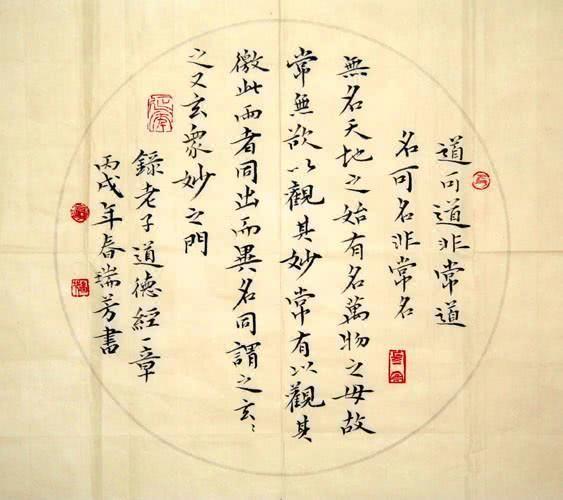 道可道非常道
名可名非常名
無名天地之始有名萬物之母故
常無欲以觀其妙常有以觀其
徼此兩者同出而異名同謂之玄〻
之又玄眾妙之門
延年
錄老子道德經一章
丙戌年春瑞芳書